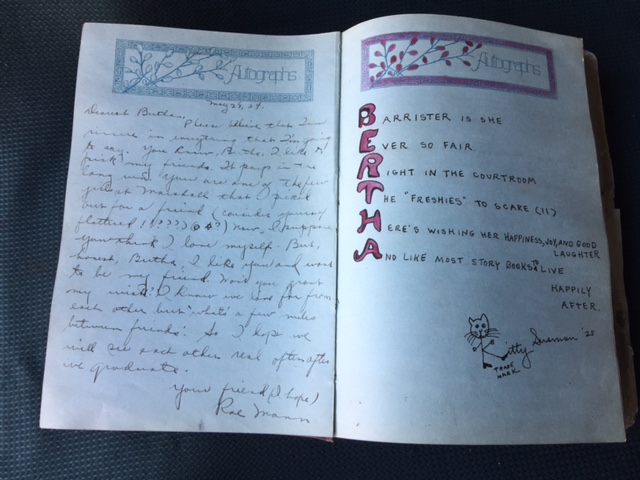 Autographs
May 28, 24.
Dearest Bertha,
Please believe that I'm
sincere in everything that I'm going
to say. You know, Bertha, I like to
pick my friends. It pays in the
long run. You are one of the few
girls at Marshall that I picked
out for a friend (consider yourself
flattered !!????) Now, I suppose
you think I love myself. But,
honest, Bertha, I like you and want
to be my friend. Won't you grant
my wish? I know we live far from
each other but what's a few miles
between friends? So I hope we
will see each other real often after
we graduate.
Your friend (I hope)
Rae Mann
Autographs
BARRISTER IS SHE
EVER SO FAIR
RIGHT IN THE COURTROOM
THE "FRESHIES" TO SCARE (!!)
HERE'S WISHING HER HAPPINESS, JOY, AND GOOD
LAUGHTER
AND LIKE MOST STORY BOOKS TO LIVE
HAPPILY
AFTER.
Kitty '25
TRADE
MARK